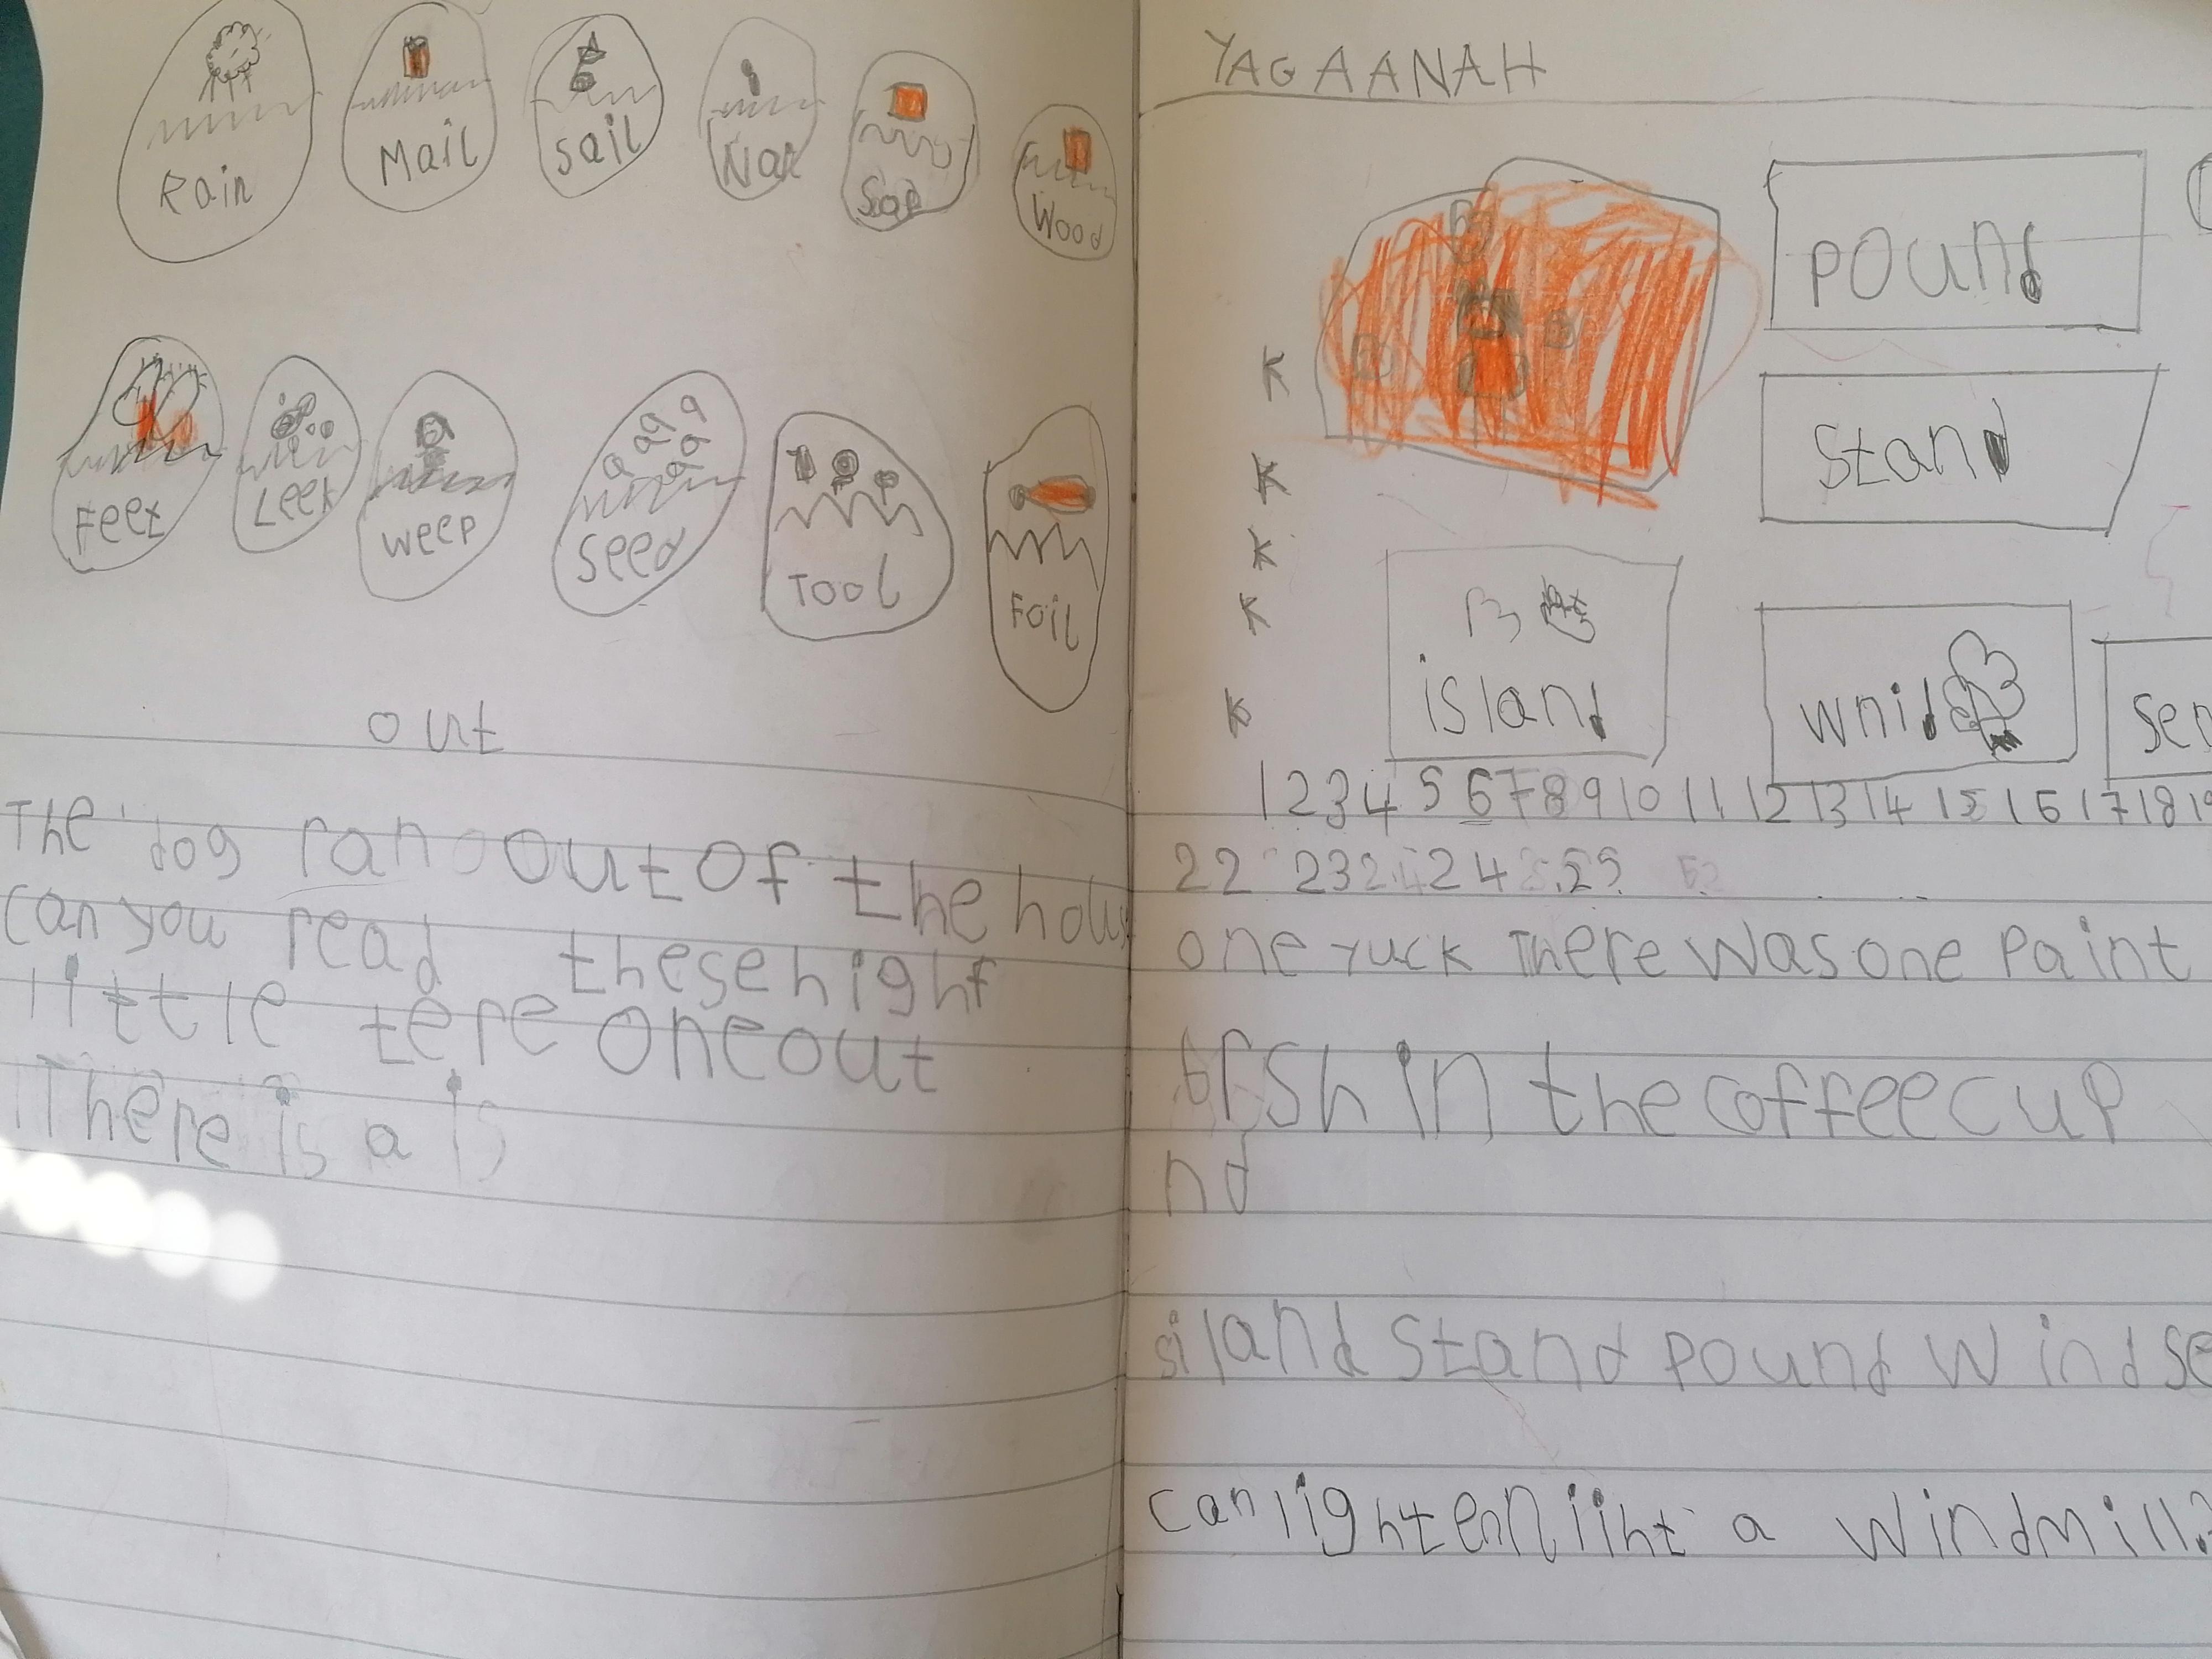 Rain Mail sail Soap Wood
Feet Leek weep Seed Tool Foil
out
The dog ran out of the hous
can you read these hight
little tere one out
There is a is
YAGAANAH
pound
K
Stand
K
K
K
island
wnid
sen
K
1 2 3 4 5 6 7 8 9 10 11 12 13 14 15 16 17 18 19
22 23 24 25
one yuck There was one paint
brsh in the coffee cup
nd
siland stand pound wind se
can lighten liht a windmill?